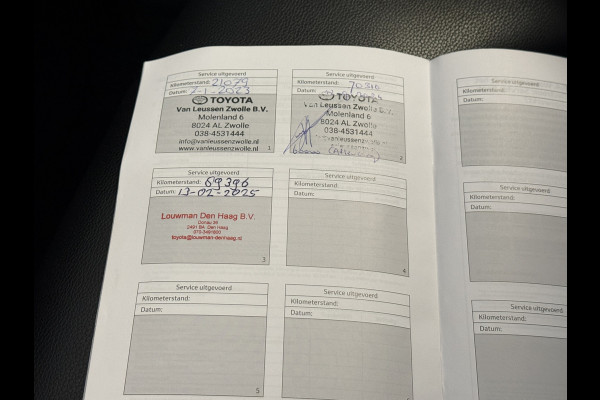 Service uitgevoerd
Kilometerstand: 21079
Datum: 2-1-2023
TOYOTA
Van Leussen Zwolle B.V.
Molenland 6
8024 AL Zwolle
038-4531444
info@vanleussenzwolle.nl
www.vanleussenzwolle.nl
1
Service uitgevoerd
Kilometerstand:
Datum:
TOYOTA
Van Leussen Zwolle B.V.
Molenland 6
8024 AL Zwolle
038-4531444
2
Service uitgevoerd
Kilometerstand: 69396
Datum: 13-02-2025
Louwman Den Haag B.V.
Donau 36
2491 BA Den Haag
toyota@louwman-denhaag.nl
3
Service uitgevoerd
Kilometerstand:
Datum:
4
Service uitgevoerd
Kilometerstand:
Datum:
5
Service uitgevoerd
Kilometerstand:
Datum:
Kilometerstand:
Datum:
Service uitgevoerd
Kilometerstand:
Datum:
Service uitgevoerd
Kilometerstand:
Datum: